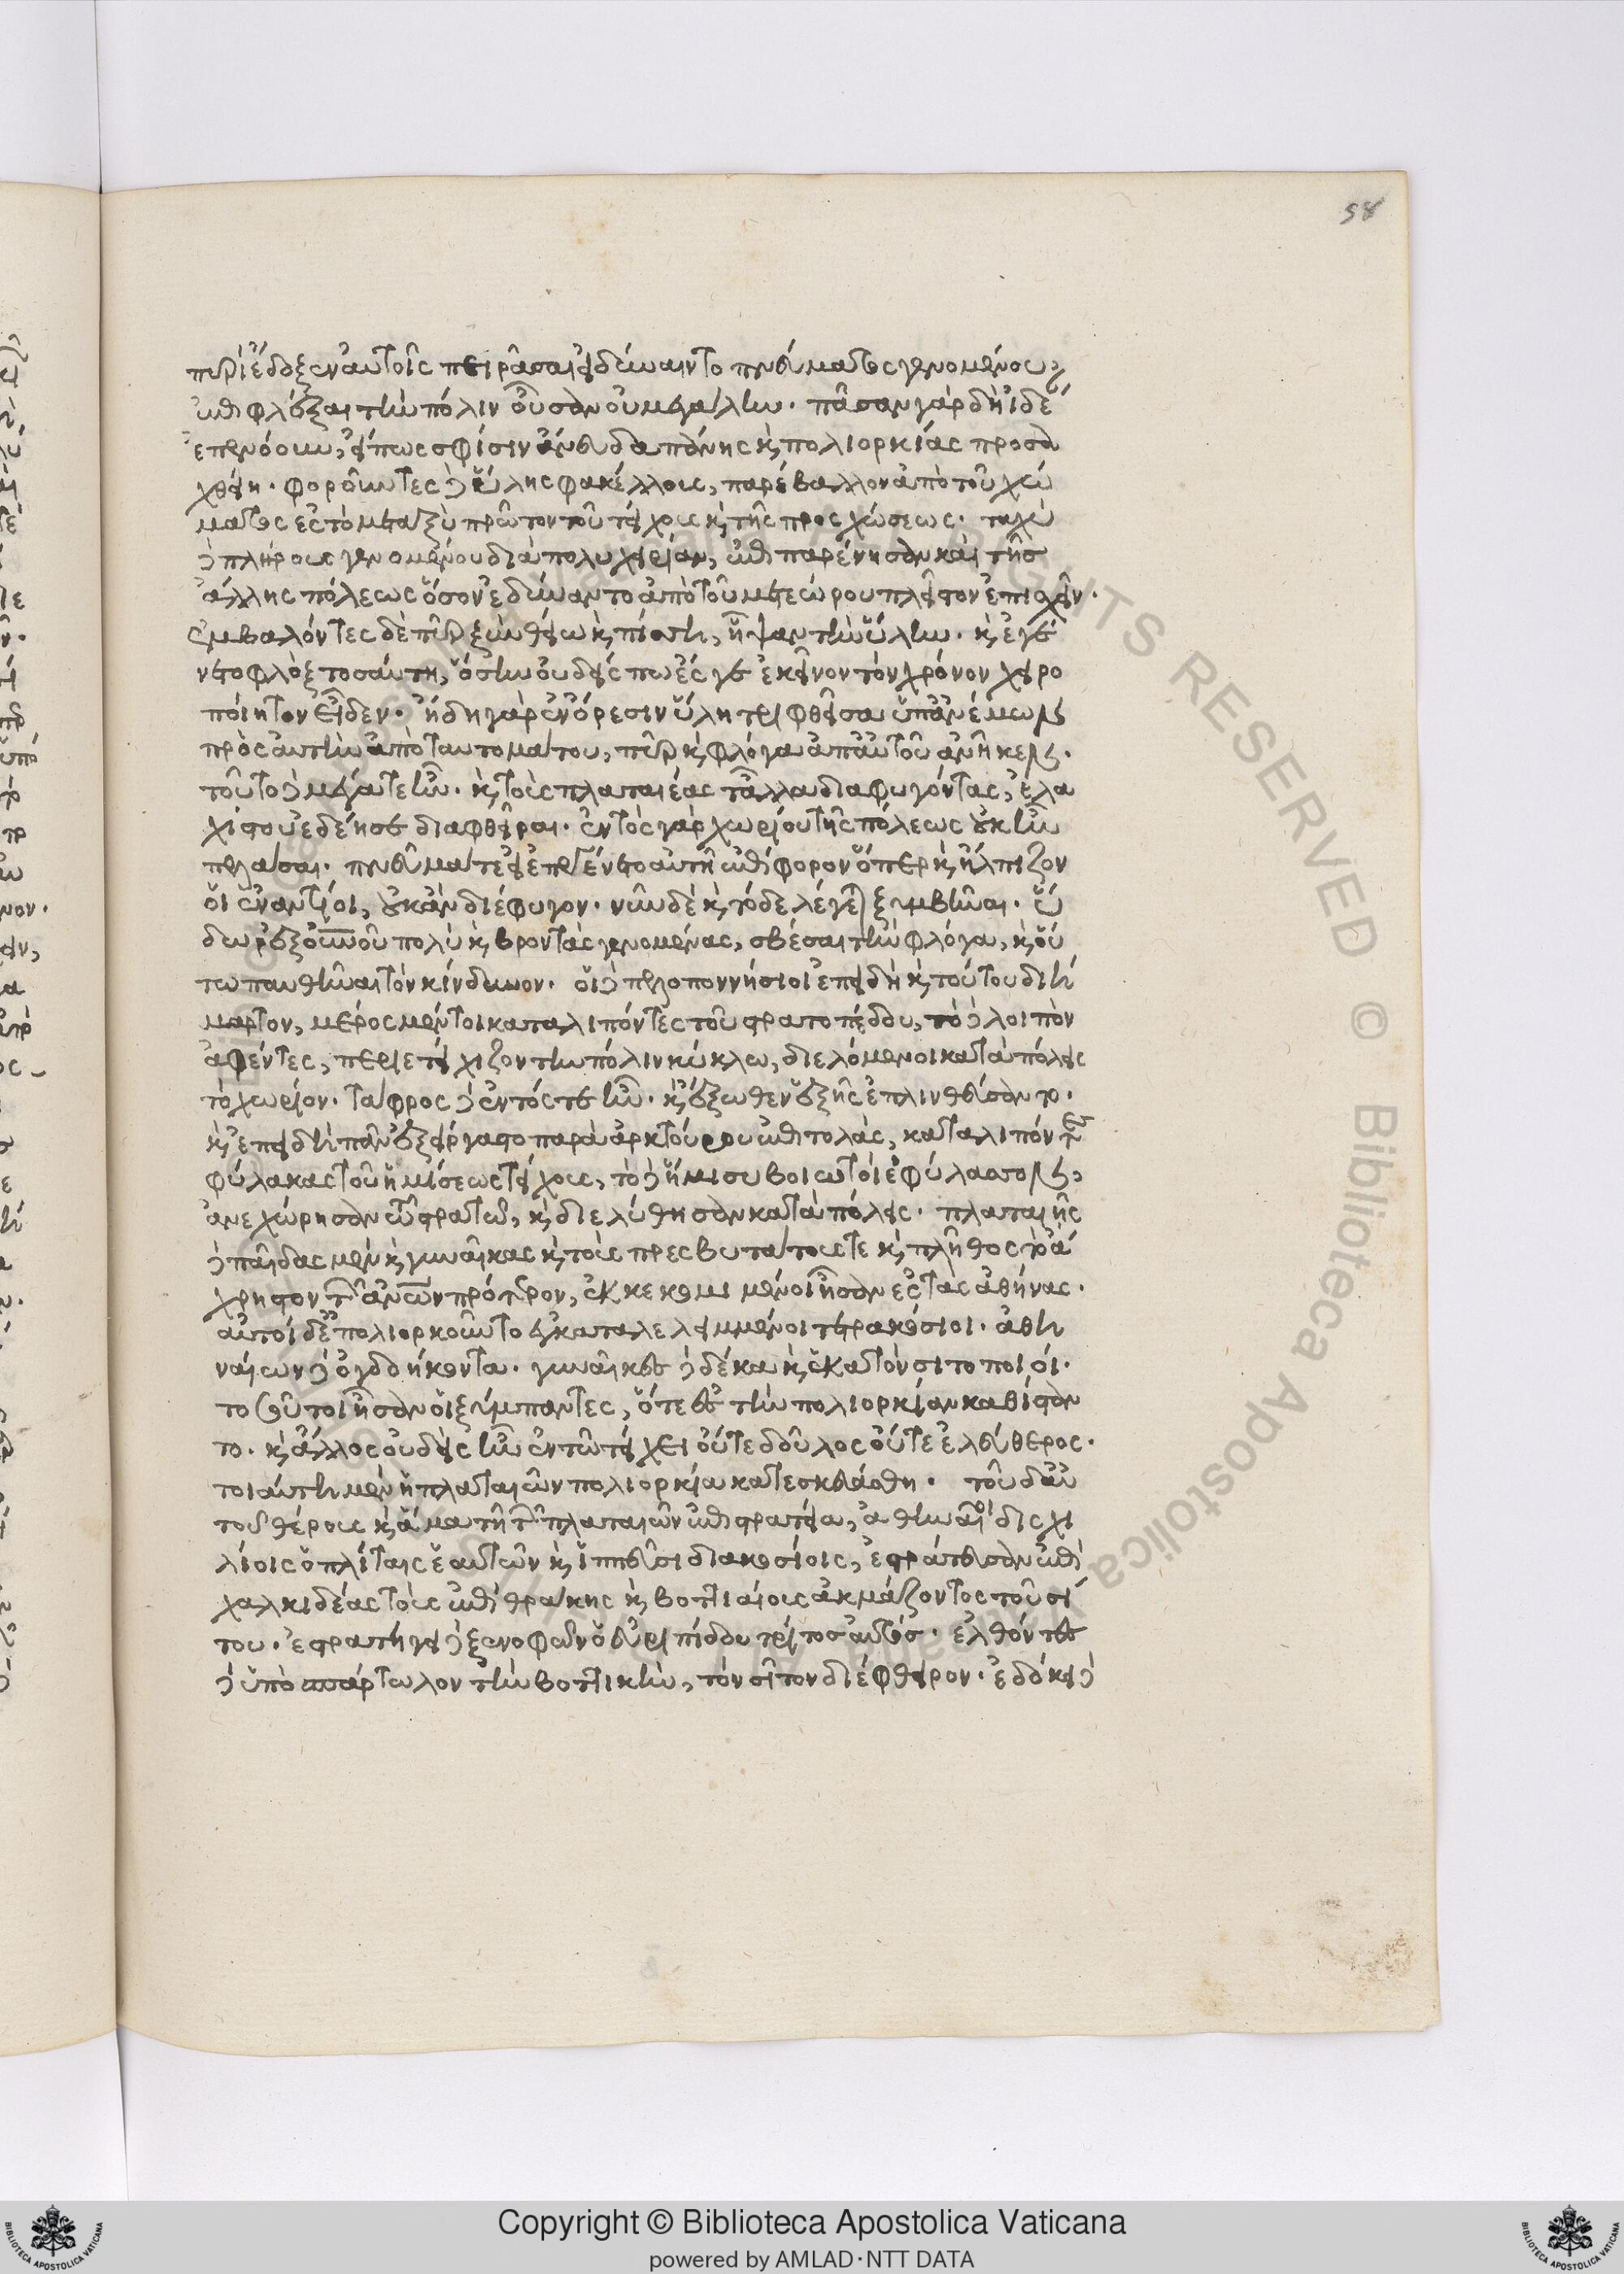 58
πυρὶ ἔδοξεν αὐτοῖς πειρᾶσαι εἰ δύναιντο πνεύματος γενομένου,
ἐπιφλέξαι τὴν πόλιν οὖσαν οὐ μεγάλην. πᾶσαν γὰρ δὴ ἰδέ
αν ἐπενόουν, εἴ πως σφίσιν ἄνευ δαπάνης καὶ πολιορκίας προσα
χθείη. φοροῦντες δὲ ὕλης φακέλλους, παρέβαλλον ἀπὸ τοῦ χώ
ματος ἐς τὸ μεταξὺ πρῶτον τοῦ τείχους καὶ τῆς προσχώσεως. ταχὺ
δὲ πλήρους γενομένου διὰ πολυχειρίαν, ἐπιπαρένησαν καὶ τῆς
ἄλλης πόλεως ὅσον ἐδύναντο ἀπὸ τοῦ μετεώρου πλεῖστον ἐπισχεῖν.
ἐμβαλόντες δὲ πῦρ ξὺν θείῳ καὶ πίσσῃ, ἧψαν τὴν ὕλην. καὶ ἐγέ
νετο φλὸξ τοσαύτη, ὅσην οὐδείς πω ἔς γε ἐκεῖνον τὸν χρόνον χειρο
ποίητον εἶδεν. ἤδη γὰρ ἐν ὄρεσιν ὕλη τριφθεῖσα ὑπ' ἀνέμων
πρὸς αὑτὴν ἀπὸ ταυτομάτου, πῦρ καὶ φλόγα ἀπ' αὐτοῦ ἀνῆκεν.
τοῦτο δὲ μέγα τε ἦν. καὶ τοὺς πλαταιέας τἄλλα διαφυγόντας, ἐλα
χίστου ἐδέησε διαφθεῖραι. ἐντὸς γὰρ χωρίου τῆς πόλεως οὐκ ἦν
πελάσαι. πνεῦμά τε εἰ ἐπεγένετο αὐτῇ ἐπίφορον ὅπερ καὶ ἤλπιζον
οἱ ἐναντίοι, οὐκ ἂν διέφυγον. νῦν δὲ καὶ τόδε λέγεται ξυμβῆναι. ὕ
δωρ ἐξ οὐρανοῦ πολὺ καὶ βροντὰς γενομένας, σβέσαι τὴν φλόγα, καὶ οὕ
τω παυθῆναι τὸν κίνδυνον. οἱ δὲ πελοποννήσιοι ἐπειδὴ καὶ τούτου διή
μαρτον, μέρος μέν τοι καταλιπόντες τοῦ στρατοπέδου, τὸ δὲ λοιπὸν
ἀφέντες, περιετείχιζον τὴν πόλιν κύκλω, διελόμενοι κατὰ πόλεις
τὸ χωρίον. τάφρος δὲ ἐντός τε ἦν. καὶ ἔξωθεν ἐξ ἧς ἐπλινθεύσαντο.
καὶ ἐπειδὴ πᾶν ἐξείργαστο παρὰ ἀρκτούρου ἐπιτολὰς, καταλιπόντες
φύλακας τοῦ ἡμίσεως τείχους, τὸ δὲ ἥμισυ βοιωτοὶ ἐφύλασσον,
ἀνεχώρησαν τῷ στρατῷ, καὶ διελύθησαν κατὰ πόλεις. πλαταιῆς
δὲ παῖδας μὲν καὶ γυναῖκας καὶ τοὺς πρεσβυτάτους τε καὶ πλῆθος τὸ ἄ
χρηστον τῶν ἀνθρώπων πρότερον, ἐκκεκομισμένοι ἦσαν ἐς τὰς ἀθήνας.
αὐτοὶ δὲ ἐπολιορκοῦντο ἐγκαταλελειμμένοι τετρακόσιοι. ἀθη
ναίων δὲ ὀγδοήκοντα. γυναῖκες δὲ δέκα καὶ ἑκατὸν σιτοποιοί.
τοσοῦτοι ἦσαν οἱ ξύμπαντες, ὅτε ἐς τὴν πολιορκίαν καθίσταν
το. καὶ ἄλλος οὐδεὶς ἦν ἐν τῶ τείχει οὔτε δοῦλος οὔτε ἐλεύθερος.
τοιαύτη μὲν ἡ πλαταιῶν πολιορκία κατεσκευάσθη. τοῦ δ' αὐ
τοῦ θέρους καὶ ἅμα τῆ τῶν πλαταιῶν ἐπιστρατεία, ἀθηναῖοι δισχι
λίοις ὁπλίταις ἑαυτῶν καὶ ἱππεῦσι διακοσίοις, ἐστράτευσαν ἐπὶ
χαλκιδέας τοὺς ἐπὶ θράκης καὶ βοττιαίους ἀκμάζοντος τοῦ σί
του. ἐστρατήγει δὲ ξενοφῶν ὁ εὐριπίδου τρίτος αὐτός. ἐλθόντες
δὲ ὑπὸ σπάρτωλον τὴν βοττικὴν, τὸν σῖτον διέφθειρον. ἐδόκει δὲ
Copyright © Biblioteca Apostolica Vaticana
powered by AMLAD·NTT DATA